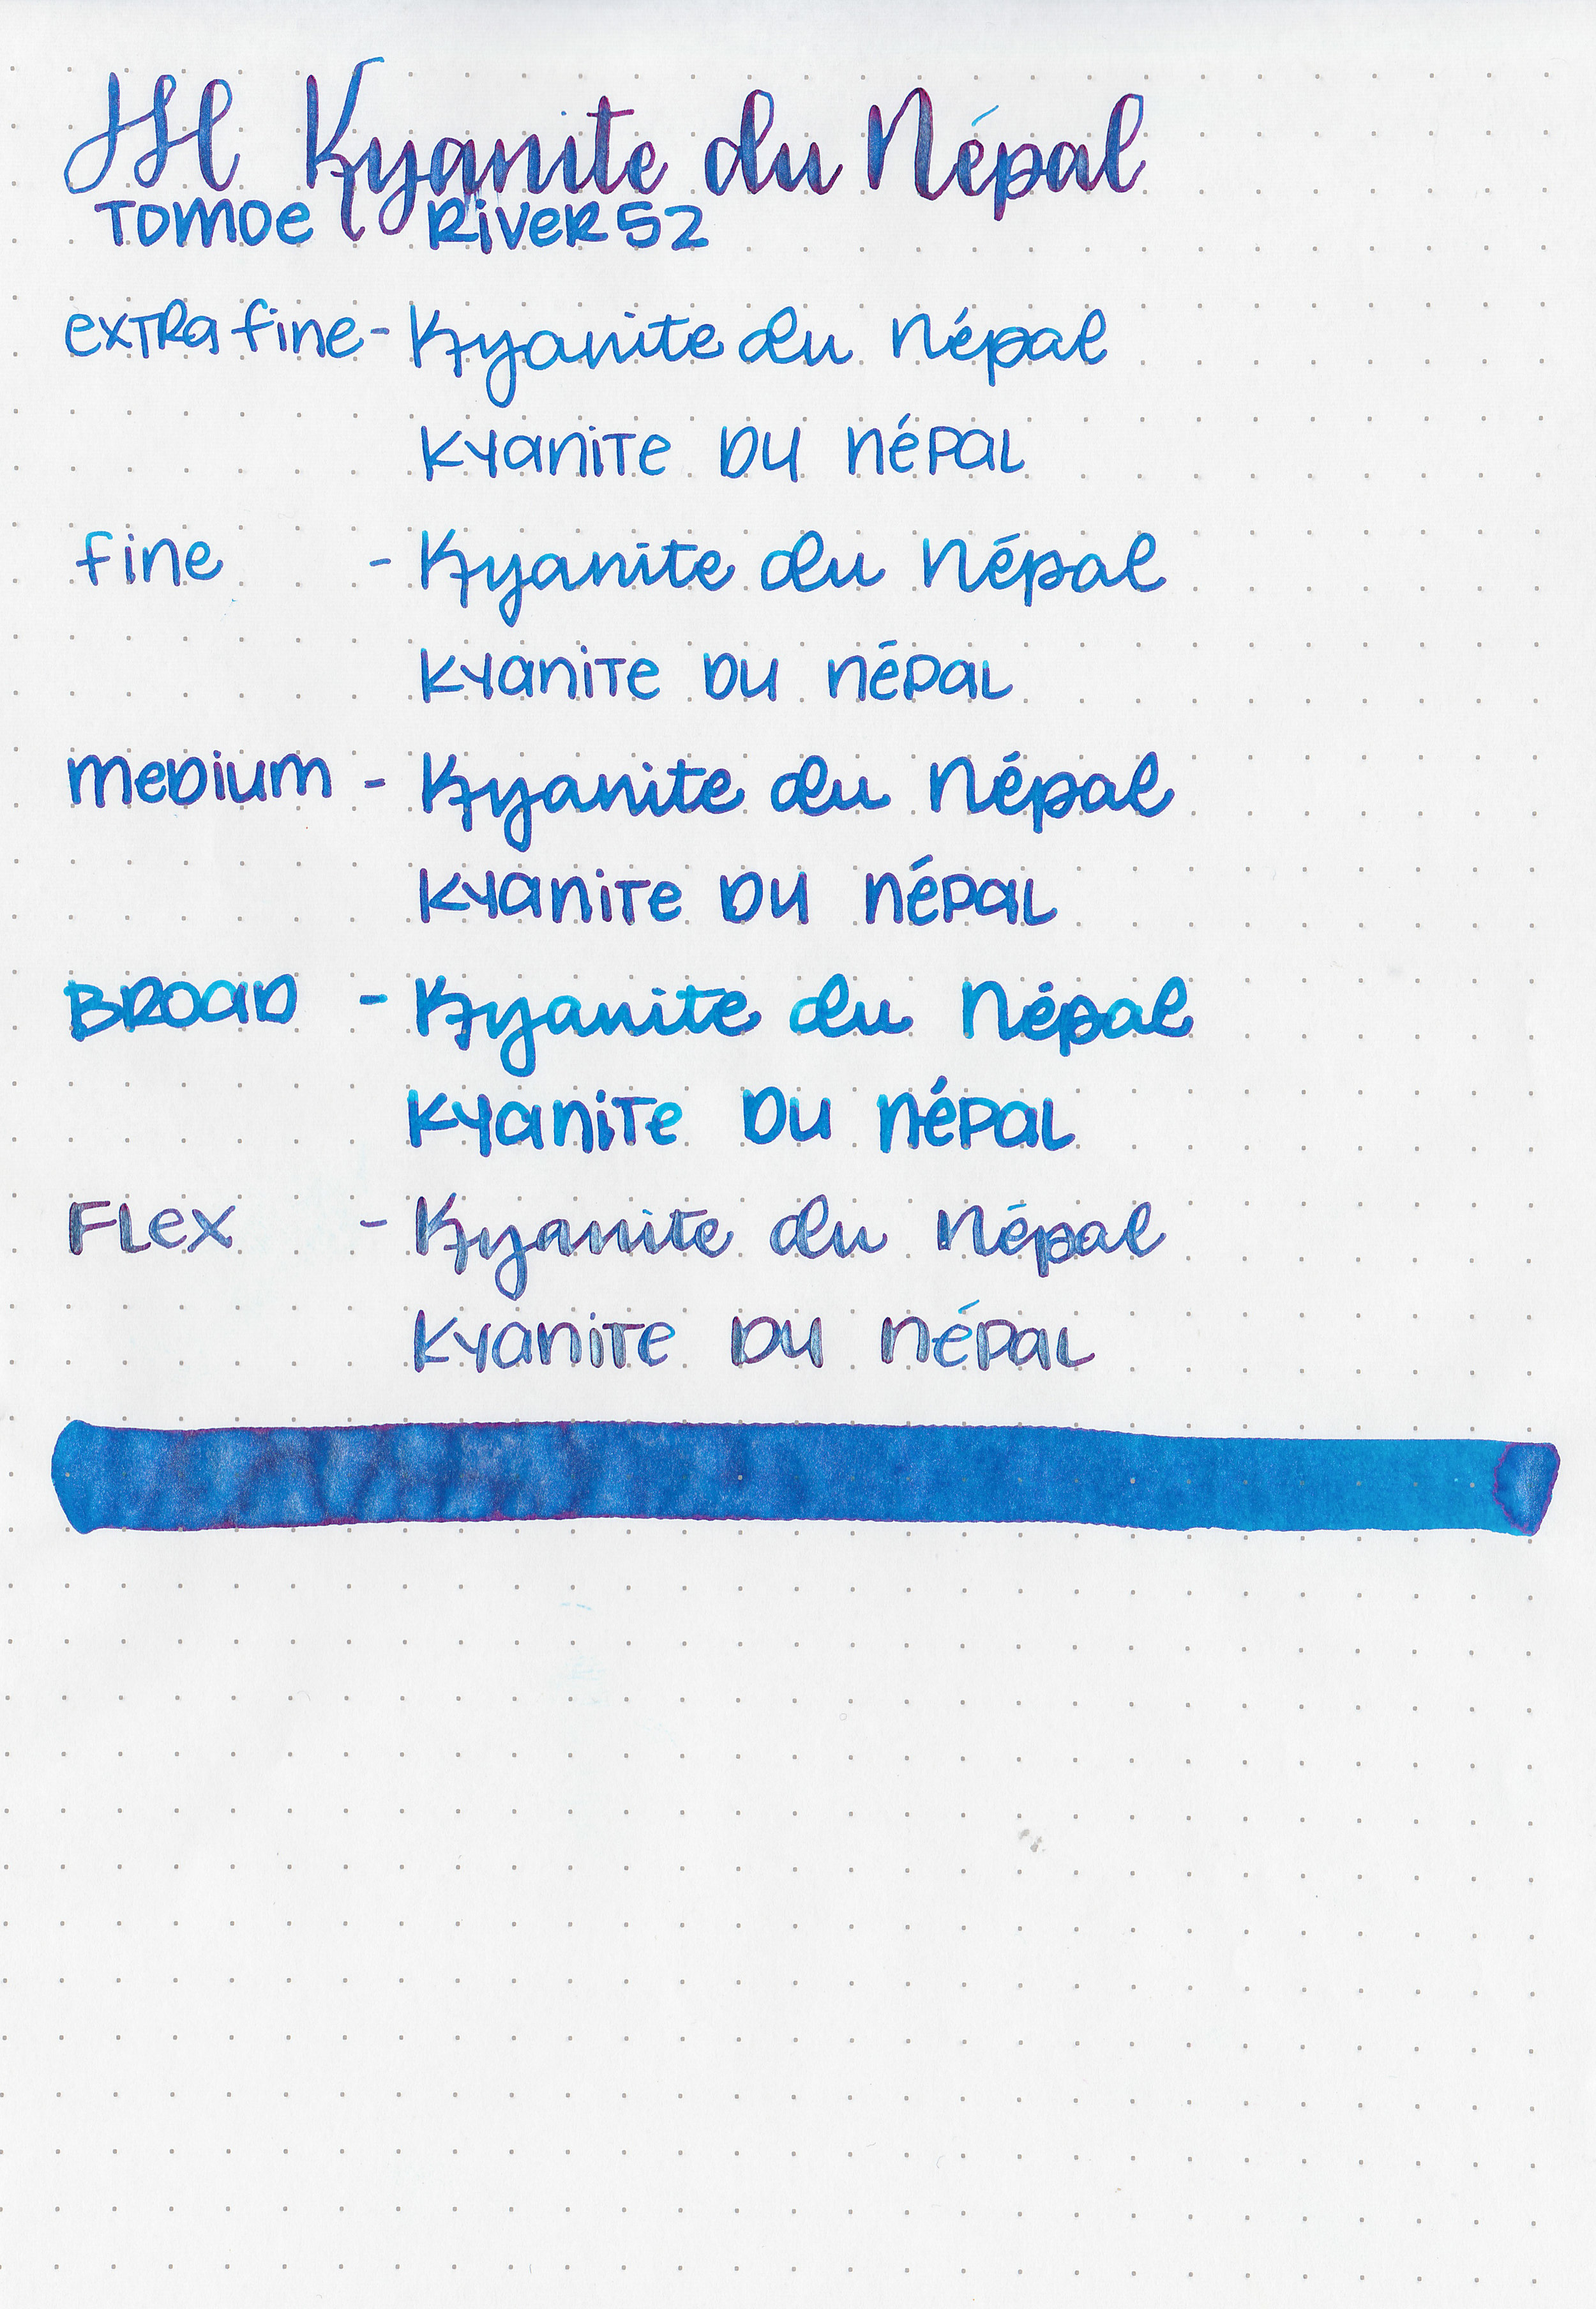 JH Kyanite du Népal
Tomoe River 52
extra fine - Kyanite du Népal
Kyanite du Népal
fine - Kyanite du Népal
Kyanite du Népal
medium - Kyanite du Népal
Kyanite du Népal
Broad - Kyanite du Népal
Kyanite du Népal
Flex - Kyanite du Népal
Kyanite du Népal